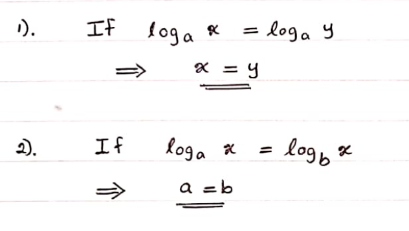 1). If logₐ x = logₐ y
⟹ x = y
2). If logₐ x = log_b x
⟹ a = b